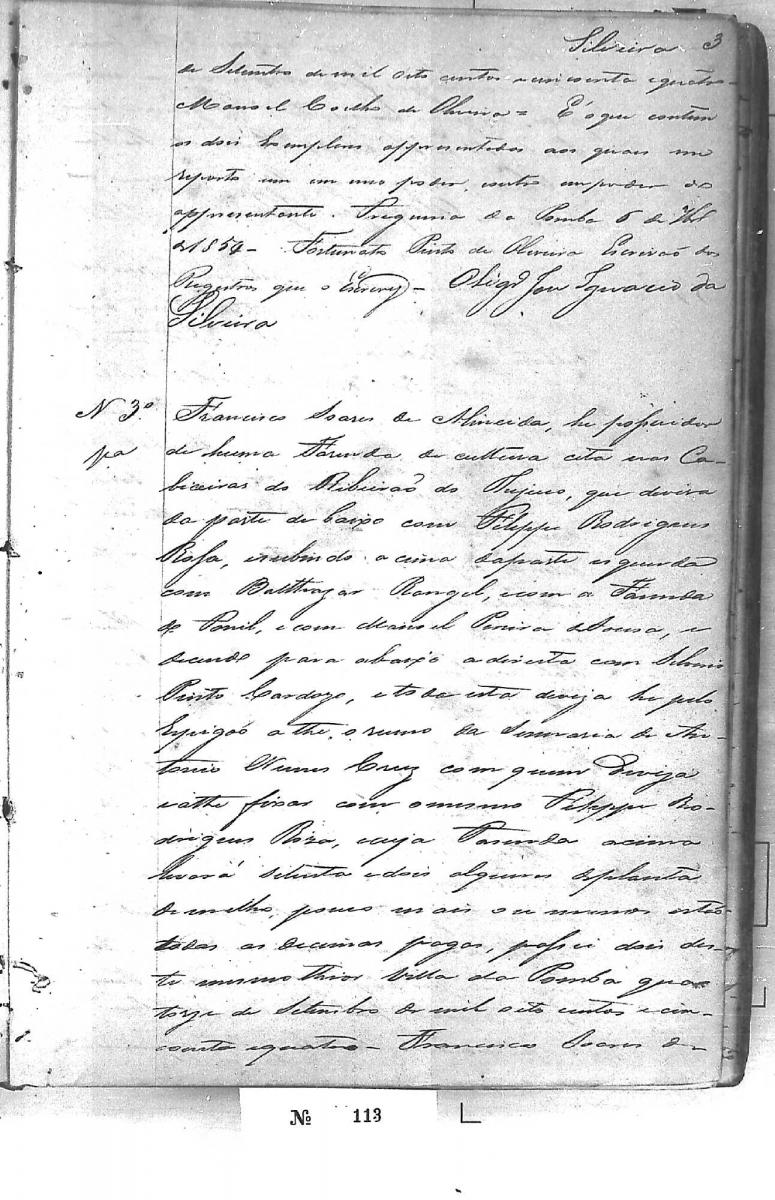 Silveira 3
de Setembro de mil oito centos e cincoenta e quatro
Manoel Coelho de Oliveira = E o que contem
os dois Exemplares appresentados aos quais me
reporto um em meo poder, e outro em poder do
appresentante. Freguesia da Pomba 6 de 7br
de 1854 - Fortunato Pinto de Oliveira Escrivaõ dos
Registros que o escrevy - O Vigr.º Jose Ignacio da
Silveira
N 3.º Francisco Soares de Almeida, he possuidor
pa de huma Fazenda de cultura cita nas Ca-
biceiras do Ribeiraõ do Tujuco, que deviza
da parte de baixo com Felippe Rodrigues
Rosa, e subindo acima da parte esquerda
com Balthazar Rangel, e com a Fazenda
do Ponil, e com Manoel Pereira de Sousa, e
decendo para abaixo a direita com Silverio
Pinto Cardozo, e toda esta deviza he pelo
Espigaõ athe o rumo da Sesmaria de An-
tonio Nunes Cruz com quem Deviza
e athe fixar com o mesmo Felippe Ro-
drigues Roza, cuja Fazenda acima
levará setenta e dois alqueires de planta
de milho, pouco mais ou menos estaõ
todas as decimas pagas, possui dois des-
te mesmo thior Villa da Pomba qua-
torze de Setembro de mil oito centos e cin-
coenta e quatro - Francisco Soares de
Nº 113